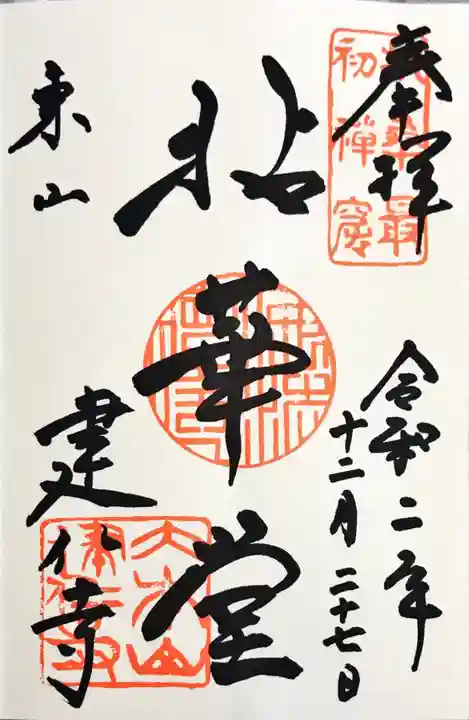 奉拝
京築最
初禅窟
令和二年
十二月二十七日
拈華堂
東山
建仁寺
大本山
建仁寺